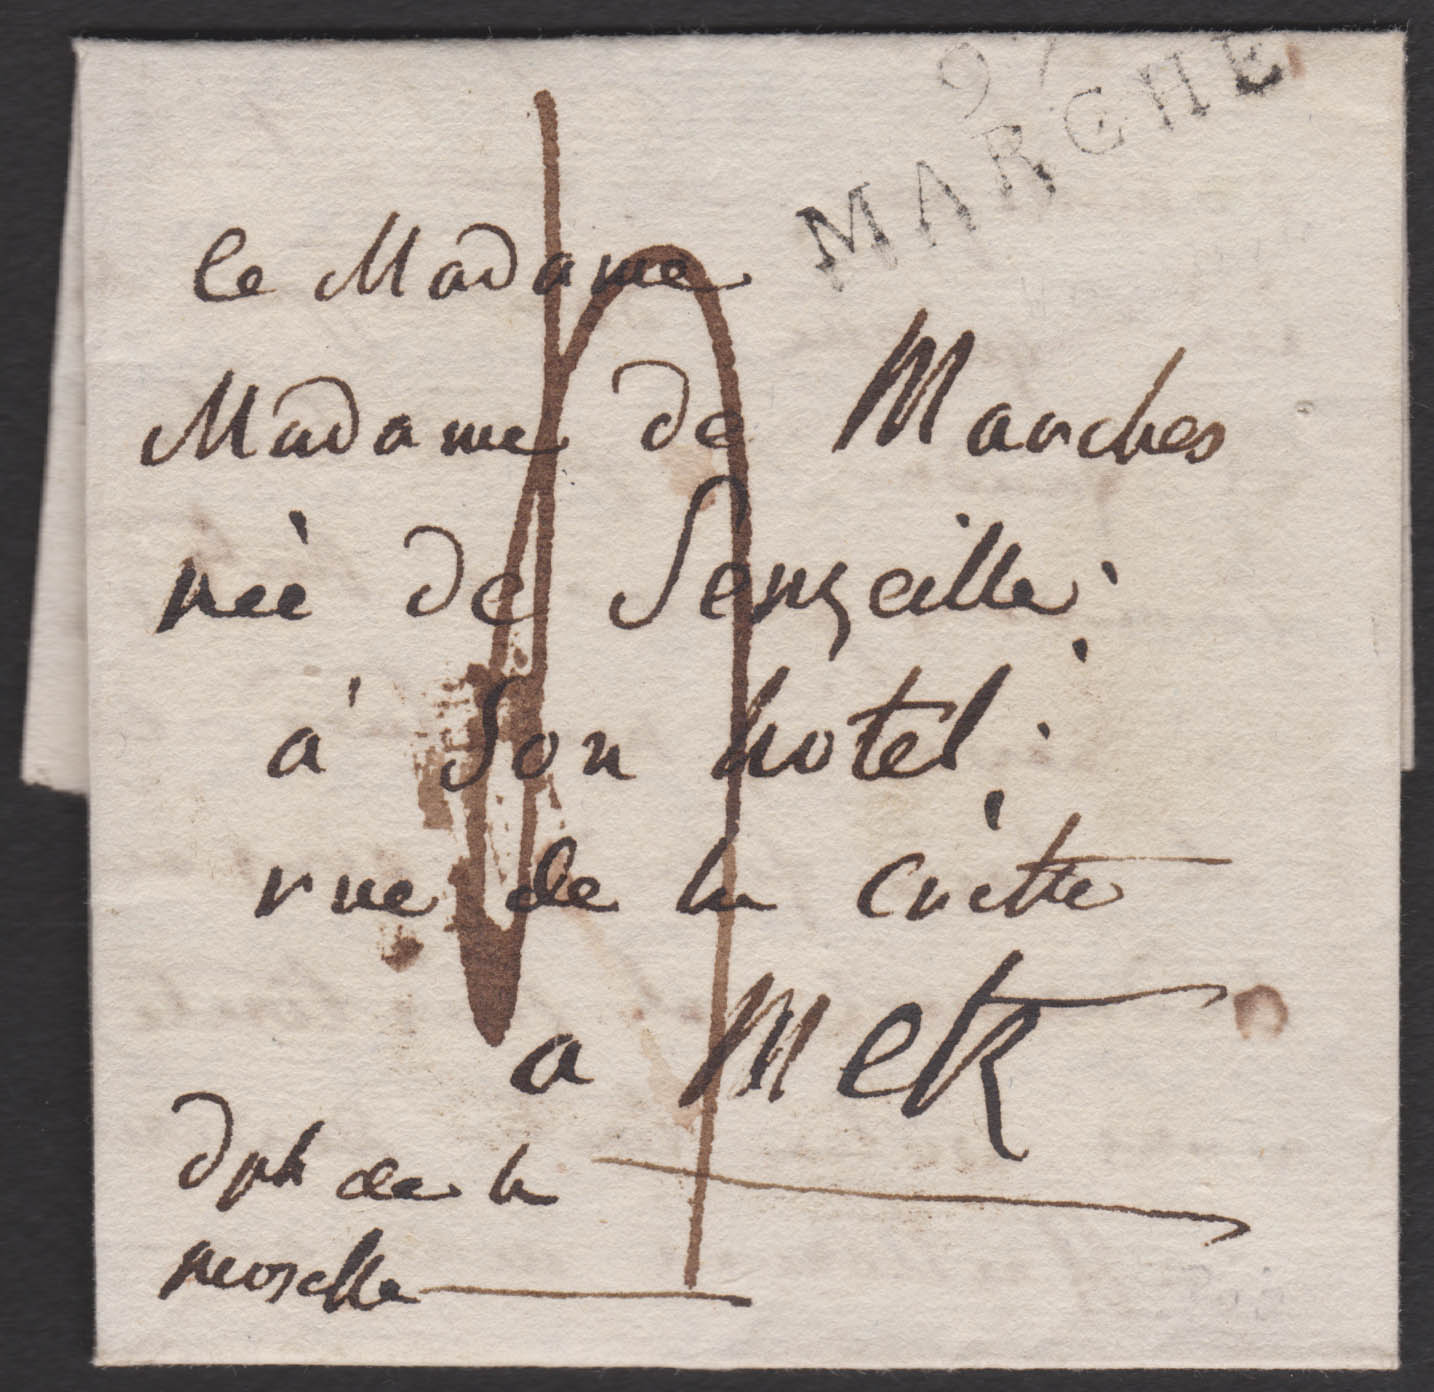 97
MARCHE
le Madame
Madame de Marches
née de Senzeille
à Son hotel
rue de la crêtte
a Metz
dpt de la
moselle